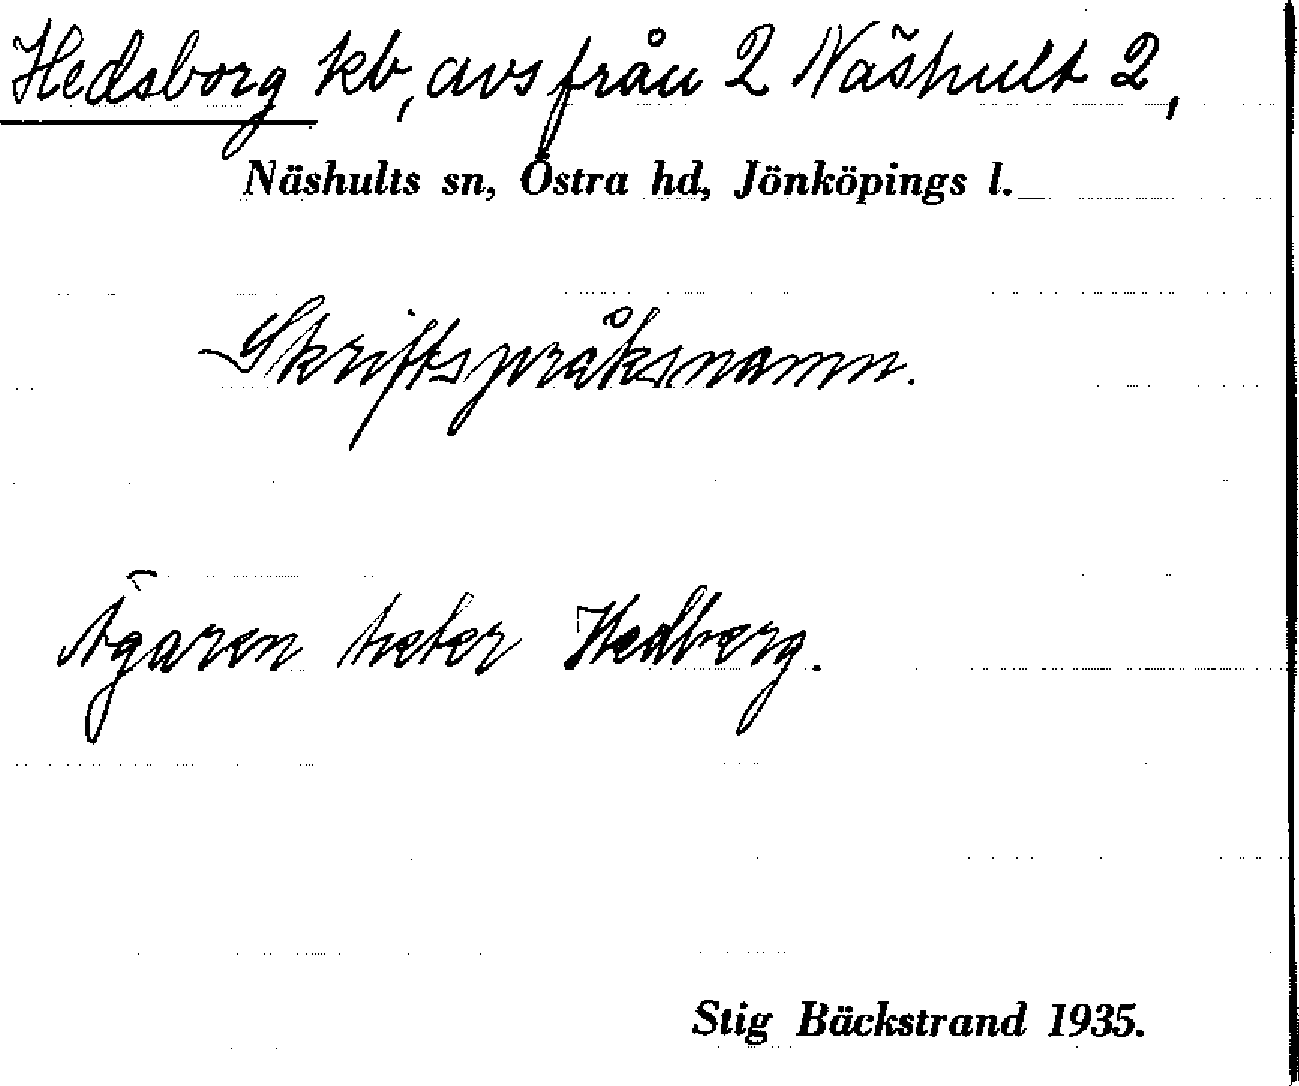 Hedsborg kb, avs från 2 Näshult 2,
Näshults sn, Östra hd, Jönköpings l.
Skriftspråksnamn.
Ägaren heter Hedberg.
Stig Bäckstrand 1935.